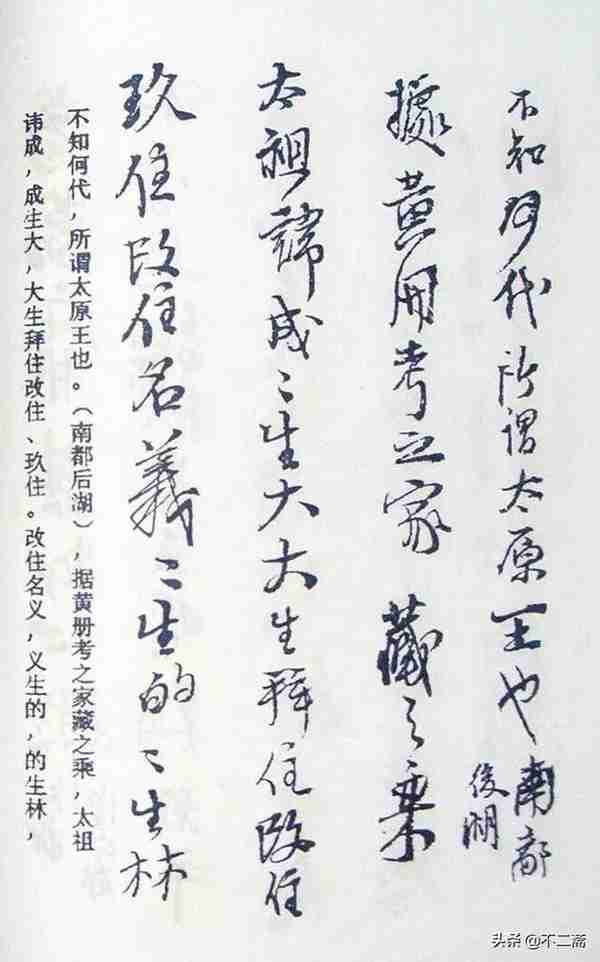 不知何代所謂太原王也南都
後湖
據黄冊考之家藏之乗
太祖諱成〻生大大生拜住改住
玖住改住名義〻生的〻生林
不知何代，所谓太原王也。（南都后湖），据黄册考之家藏之乘，太祖
讳成，成生大，大生拜住改住、玖住。改住名义，义生的，的生林，
头条 @不二斋